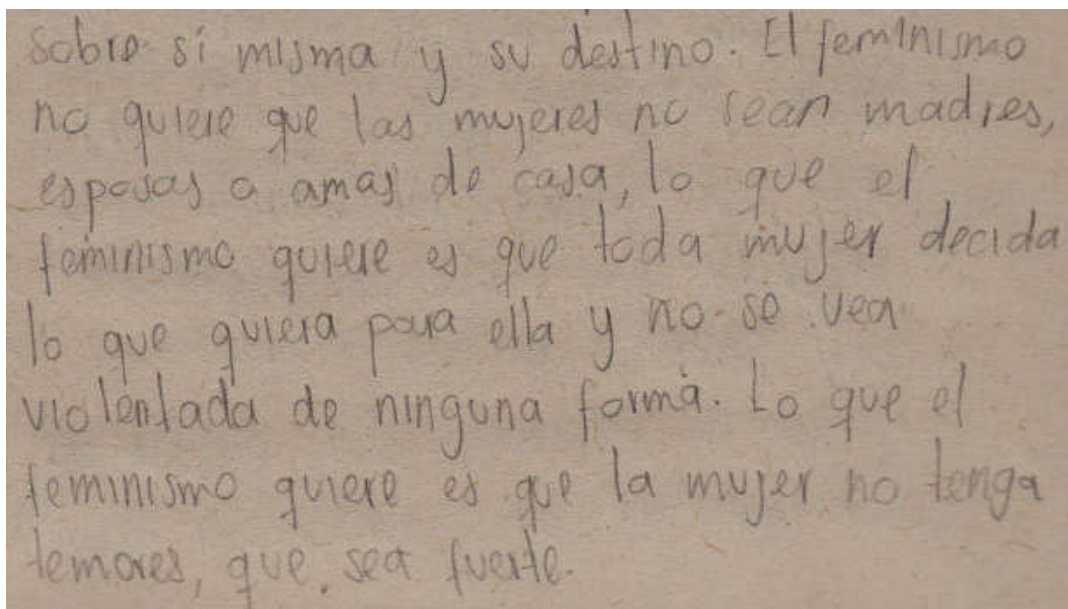 sobre sí misma y su destino. El feminismo
no quiere que las mujeres no sean madres,
esposas o amas de casa, lo que el
feminismo quiere es que toda mujer decida
lo que quiera para ella y no se vea
violentada de ninguna forma. Lo que el
feminismo quiere es que la mujer no tenga
temores, que sea fuerte.